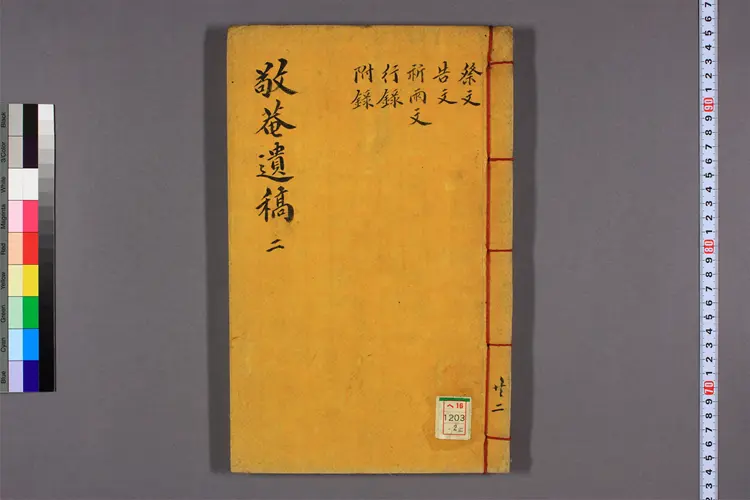 敬菴遺稿 二
祭文
告文
祈雨文
行錄
附錄
共二
ヘ16
1203
2
Black
3/Color
White
Magenta
Red
Yellow
Green
Cyan
Blue
7
6
5
4
3
2
1
90
9
8
7
6
5
4
3
2
1
80
9
8
7
6
5
4
3
2
1
70
9
8
7
6
5
4
3